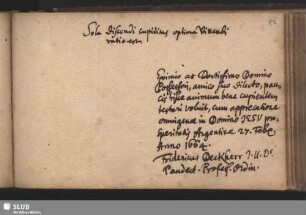 Sola discendi cupiditas optima Vivendi
ratio est.
86
Eximio ac Doctissimo Domino
Possessori, amico suo dilecto, pau-
cis hisce animum bene cupientem
testari voluit, cum apprecatione
omnigenæ in Domino JESU pro-
speritatis Argentinæ 27. Febr.
Anno 1664.
Fridericus Deckherr J. U. Dr.
Pandect. Profess. Ordin.
SLUB
Wir führen Wissen.